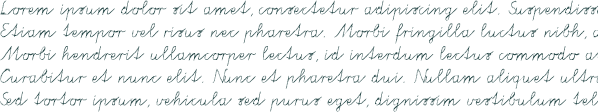 Lorem ipsum dolor sit amet, consectetur adipiscing elit. Suspendiss
Etiam tempor vel risus nec pharetra. Morbi fringilla luctus nibh,
Morbi hendrerit ullamcorper lectus, id interdum lectus commodo a
Curabitur et nunc elit. Nunc et pharetra dui. Nullam aliquet ultri
Sed tortor ipsum, vehicula sed purus eget, dignissim vestibulum tel